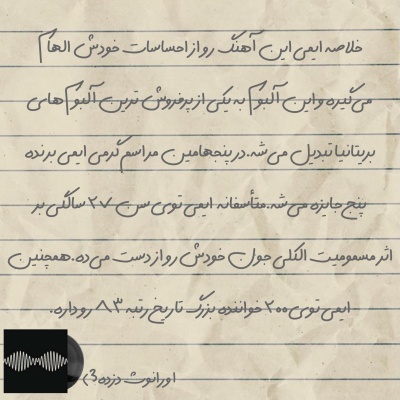 خلاصه ایمی این آهنگ رو از احساسات خودش الهام
می‌گیره و این آلبوم به یکی از پرفروش ترین آلبوم های
بریتانیا تبدیل می شه. در پنجاهمین مراسم گرمی ایمی برنده
پنج جایزه می شه. متأسفانه ایمی توی سن ۲۷ سالگی بر
اثر مسمومیت الکلی جون خودش رو از دست می ده. همچنین
ایمی توی ۲۰۰ خواننده بزرگ تاریخ رتبه ۸۳ رو داره.
اورانوث دزده3>